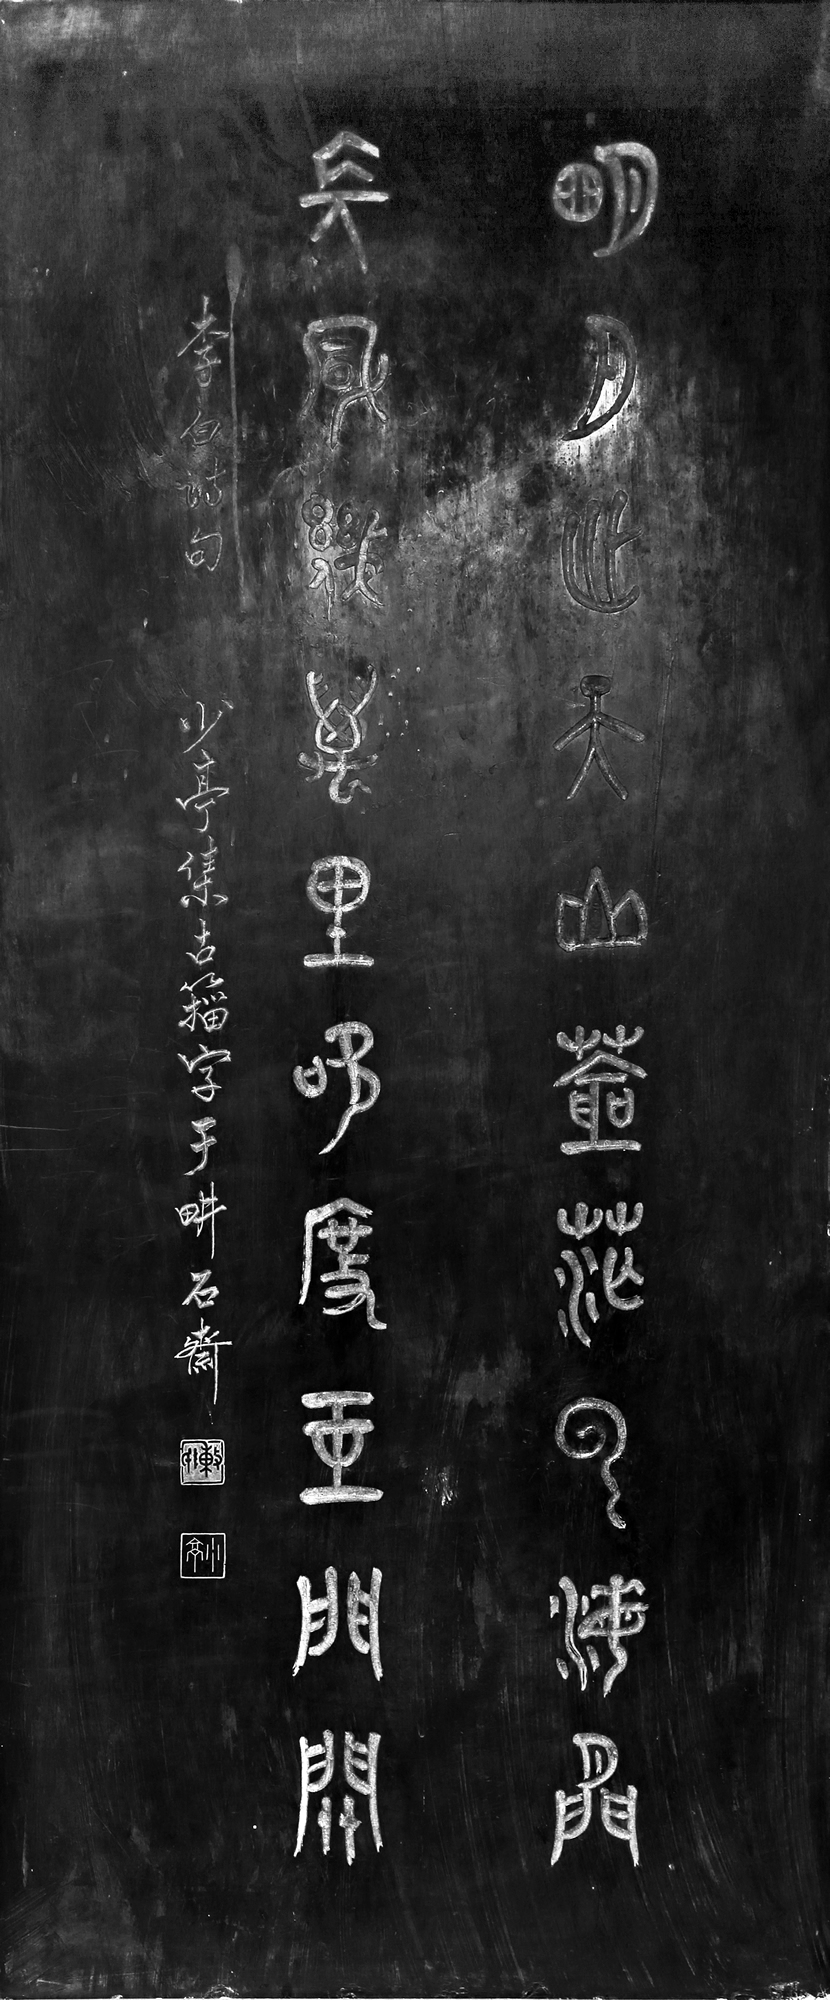 明月出天山蒼茫云海閒
長風幾萬里吹度玉門關
李白詩句 少亭集古籀字于畊石齋
少亭